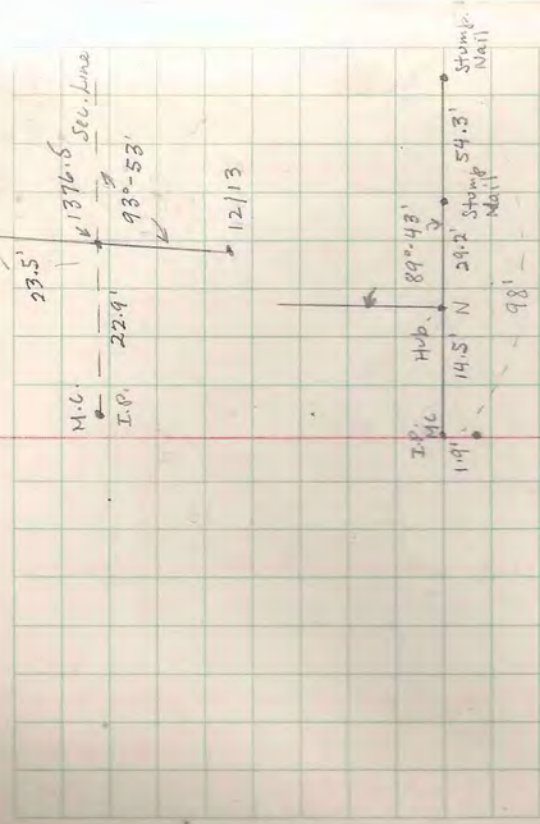 23.5'
M.C.
1376.5
Sec. Line
I.P.
22.9'
93°-53'
12/13
I.P.
M.C.
Hub.
89°-43'
1.9'
14.5'
N
29.2'
Stump
Nail
54.3'
Stump.
Nail
98'